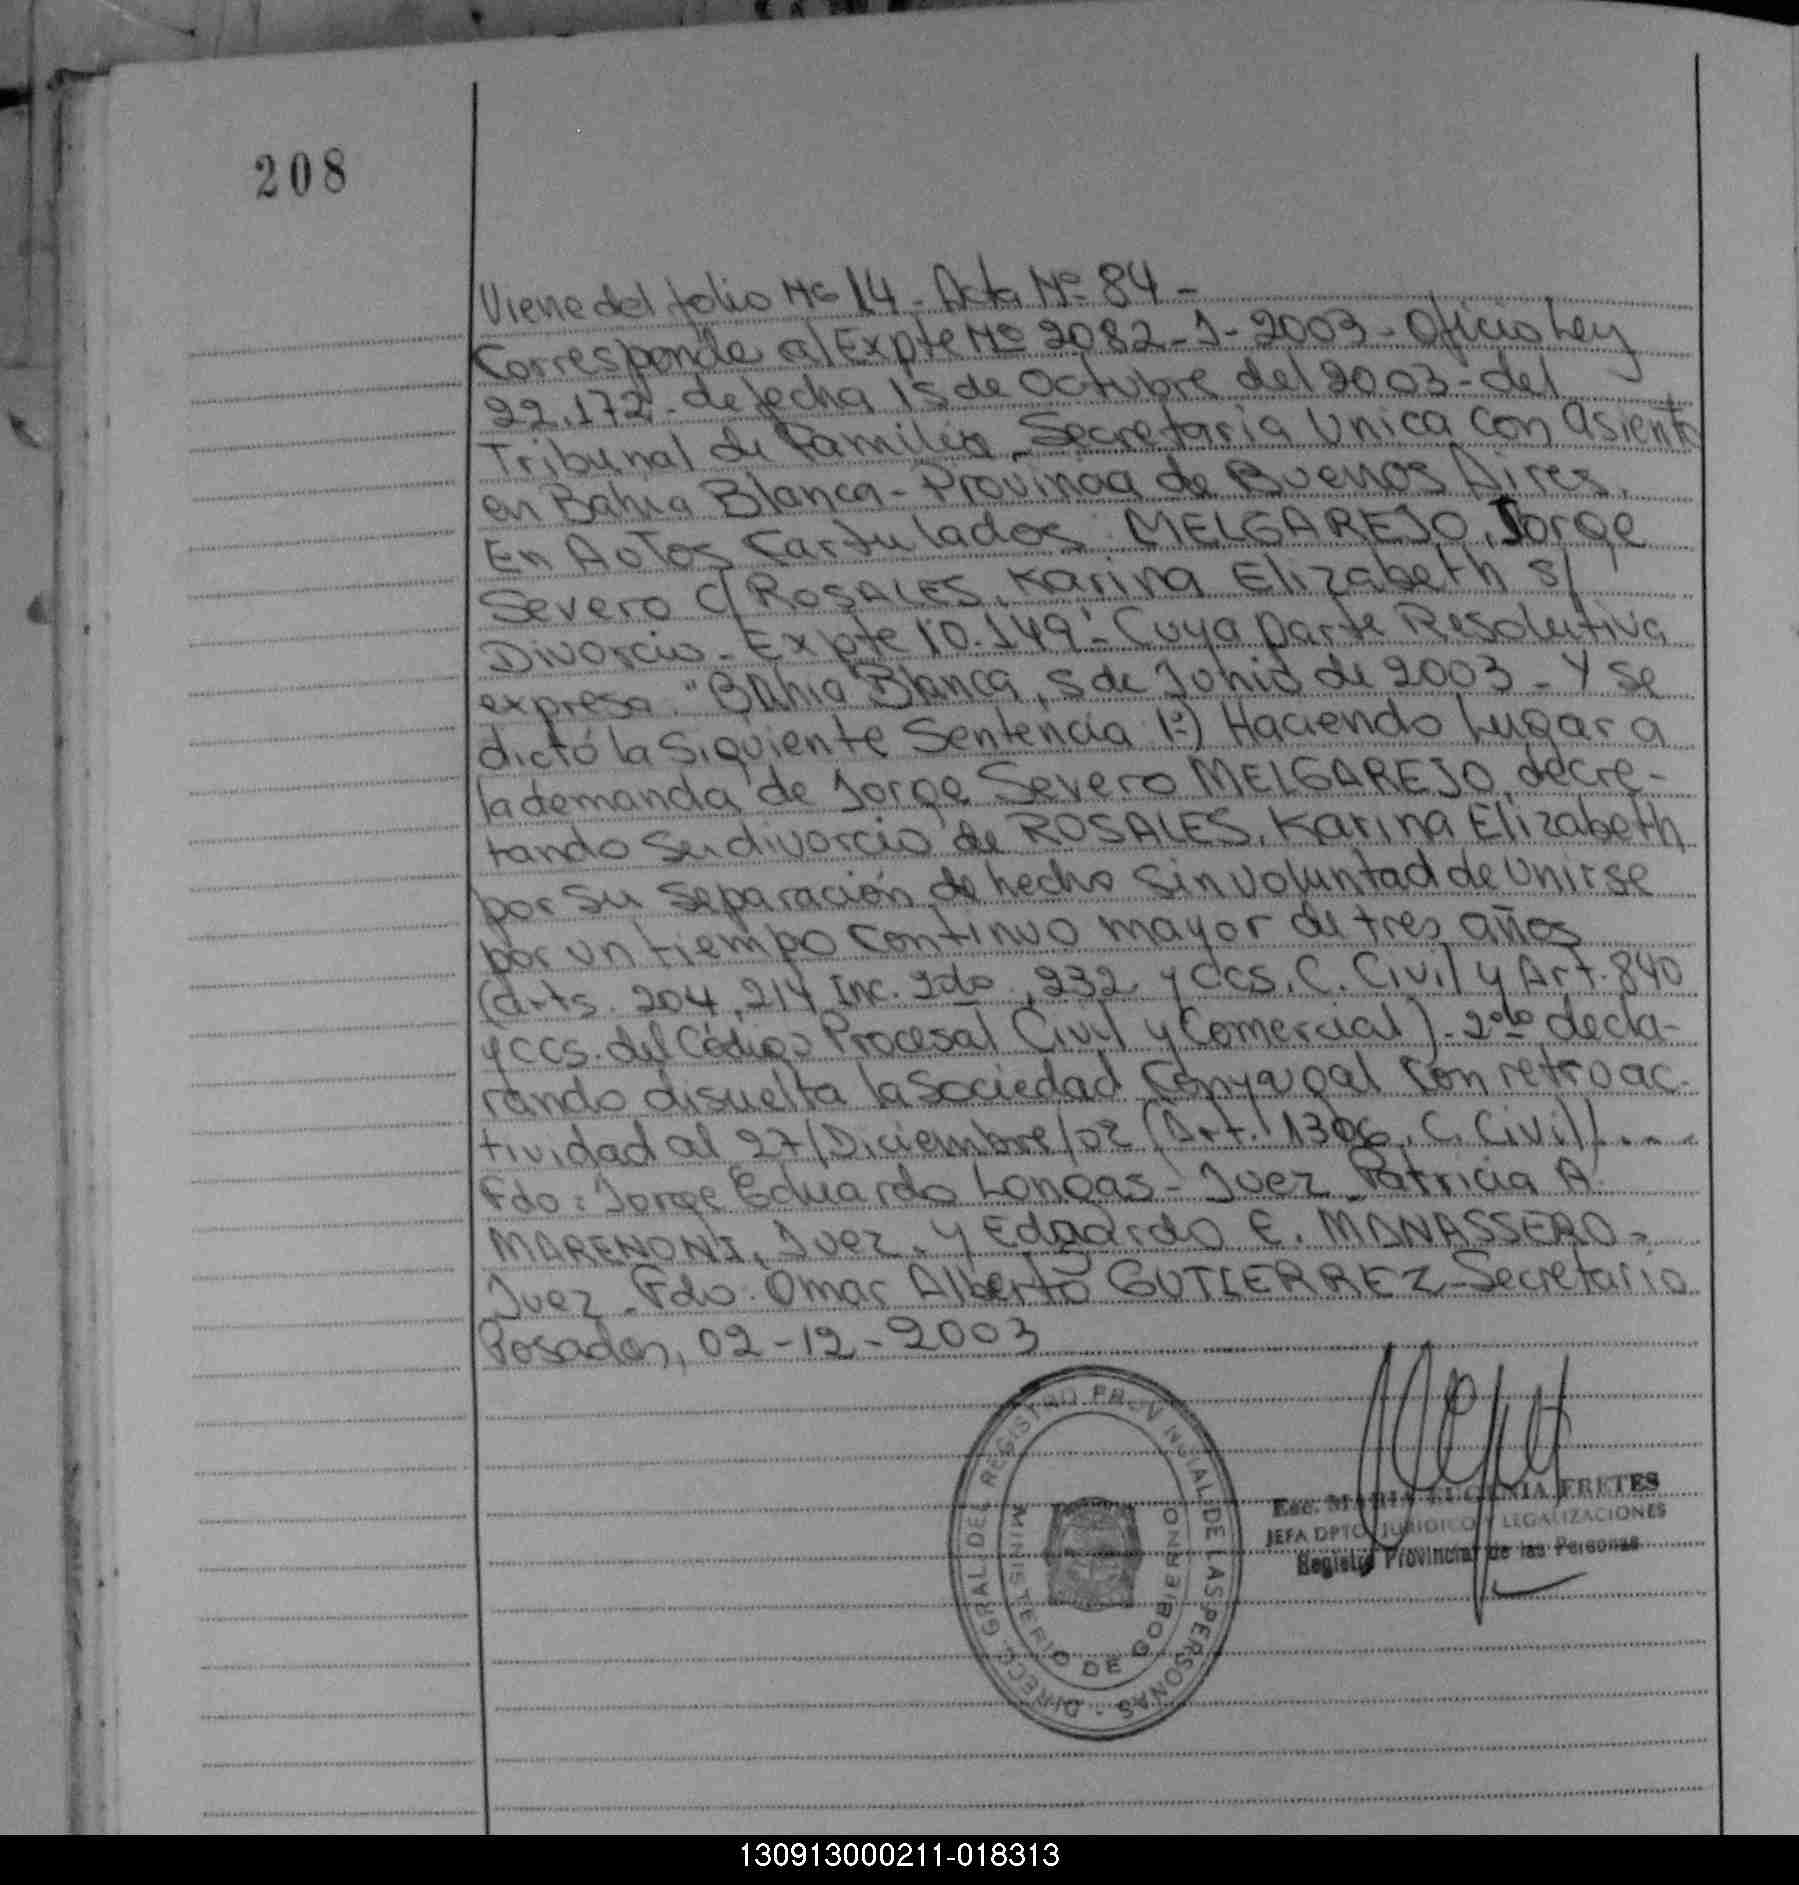 208
Viene del folio Nº 14 - Acta Nº 84 -
Corresponde al Expte Nº 2082-J-2003 - Oficio Ley
22.172 - de fecha 15 de Octubre del 2003 - del
Tribunal de Familia - Secretaria Unica con asiento
en Bahia Blanca - Provincia de Buenos Aires.
En Autos Cartulados: MELGAREJO, Jorge
Severo C/ ROSALES, Karina Elizabeth s/
Divorcio - Expte 10.149" - Cuya parte Resolutiva
expresa: "Bahia Blanca, 5 de Junio de 2003 - Y se
dictó la Siguiente Sentencia 1º) Haciendo Lugar a
la demanda de Jorge Severo MELGAREJO, decre-
tando su divorcio de ROSALES, Karina Elizabeth
por su separación de hecho sin voluntad de unirse
por un tiempo continuo mayor de tres años
(arts. 204, 214 Inc. 2do, 232 y ccs. C. Civil y Art. 840
y ccs. del Código Procesal Civil y Comercial) - 2do decla-
rando disuelta la sociedad conyugal con retroac-
tividad al 27/Diciembre/02 (Art. 1306. C. Civil). ...
Fdo: Jorge Eduardo Longas - Juez - Patricia A.
MARENONI, Juez, y Edgardo E. MANASSERO -
Juez - Fdo. Omar Alberto GUTIERREZ - Secretario
Posadas, 02-12-2003
DIRECC. GRAL. DEL REGISTRO PROVINCIAL DE LAS PERSONAS
MINISTERIO DE GOBIERNO
Esc. MARIA EUGENIA FRETES
JEFA DPTO. JURIDICO Y LEGALIZACIONES
Registro Provincial de las Personas
130913000211-018313